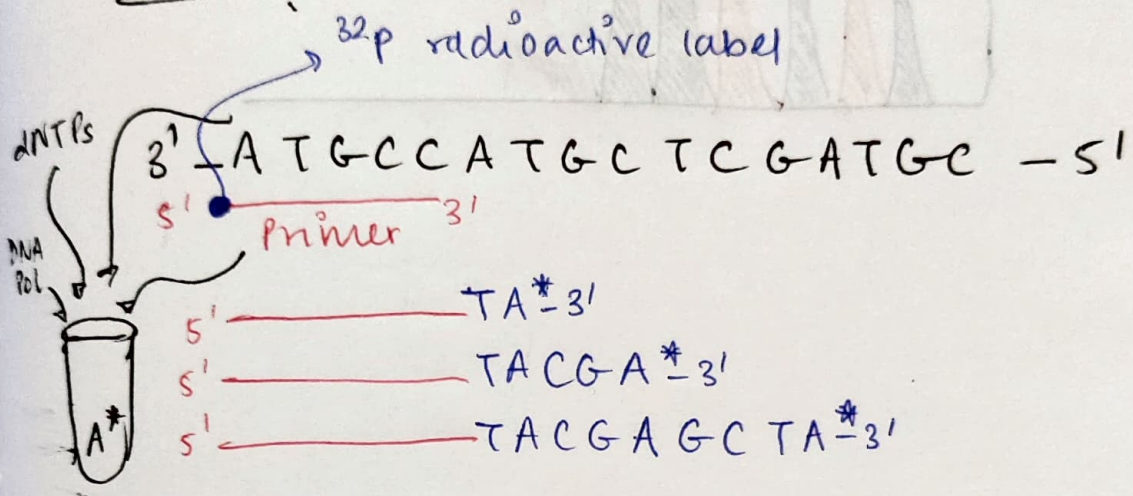 32p radioactive label
dNTPs
3' - A T G C C A T G C T C G A T G C - 5'
5' 3'
Primer
DNA
Pol
5' TA*-3'
5' TACGA*-3'
5' TACGAGCTA*-3'
A*